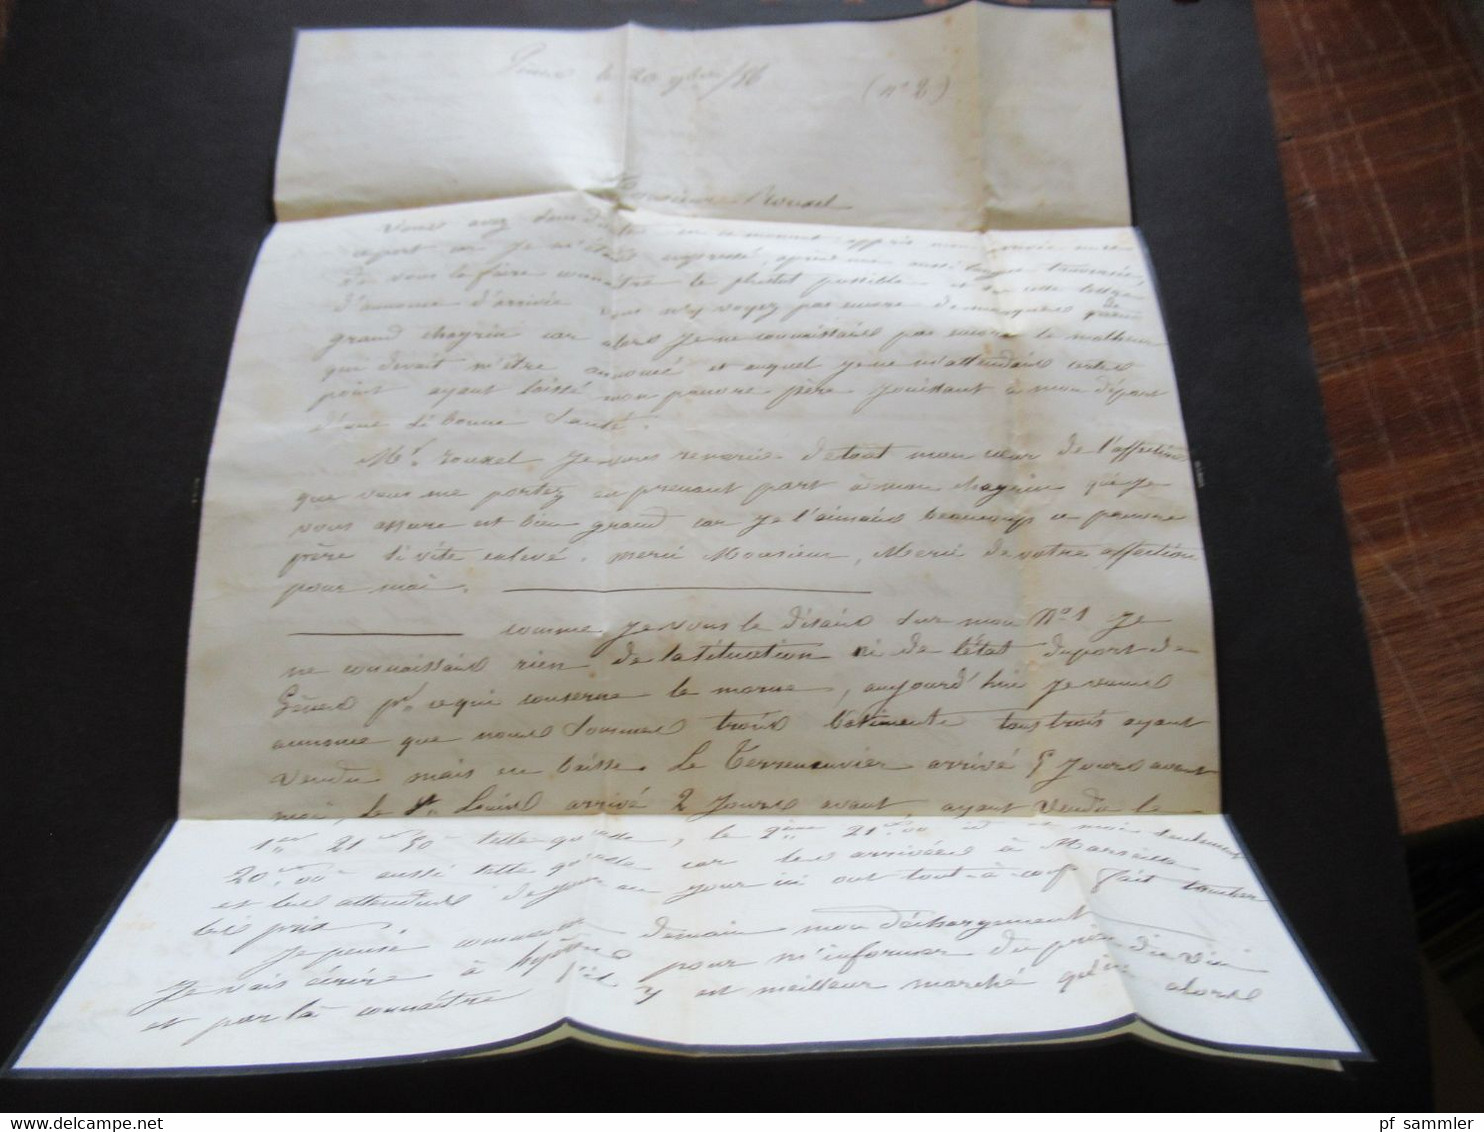 Gênes le 20 9bre/56 (N° 2)
Monsieur Rouxel
Vous avez dans ce moment appris mon arrivée
à port car je m'étais empressé après une aussi longue traversée,
de vous le faire connaître le plustot possible et sur cette lettre
d'annonce d'arrivée vous n'y voyez pas encore de marques de
grand chagrin car alors je ne connaissais pas encore le malheur
que devait m'être annoncé et auquel je ne m'attendais certes
point ayant laissé mon pauvre père jouissant à mon départ
d'une si bonne santé.
Mr. Rouxel je vous remercie de tout mon cœur de l'affection
que vous me portez en prenant part à mon chagrin que je
vous assure est bien grand car je l'aimais beaucoup ce pauvre
père si vite enlevé. merci Monsieur, Merci de votre affection
pour moi.
comme je vous le disais sur mon N° 1 je
ne connaissais rien de la situation ni de l'état du port de
Gênes pr. ce qui conserne la morue, aujourd'hui je vous
annonce que nous sommes trois bâtiments tous trois ayant
vendu mais en baisse. Le Terreneuvier arrivé 5 jours avant
moi, le St. Louis arrivé 2 jours avant ayant vendu le
1er 21 50 telle quelle, le 2ème 21.00 id et moi seulement
20.00 aussi telle quelle car les arrivées à Marseille
et les attendues de jour en jour ici ont tout-à-coup fait tomber
les prix.
Je pense commencer demain mon déchargement
Je vais écrire à pour m'informer du prix du vin
et par là connaître s'il y est meilleur marché qu'ici alors
pf sammler